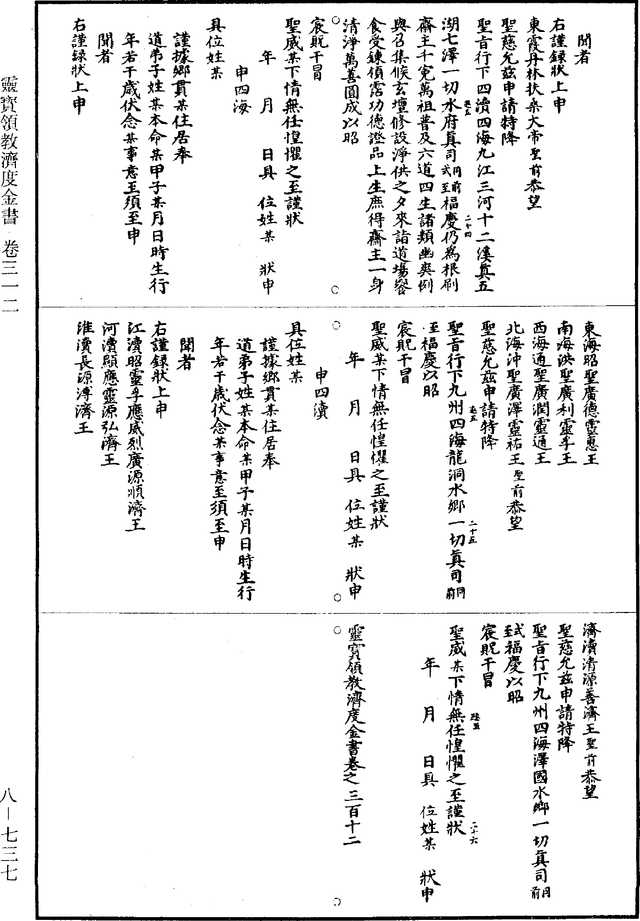 聞者
右謹錄狀上申
東霞丹林扶桑大帝聖前恭望
聖慈允茲申請特降
聖旨行下四瀆四海九江三河十二溪眞五
湖七澤一切水府眞司同前式至福慶仍爲根刷
齋主千寃萬祖普及六道四生諸類幽爽例
與召集候玄壇修設淨供之夕來詣道場饗
食受鍊債霑功德證品上生庶得齋主一身
清淨萬善圓成以昭
宸貺干冒
聖威某下情無任惶懼之至謹狀
年 月 日具 位姓某 狀申
申四海
具位姓某
謹據鄉貫某住居奉
道弟子姓某本命某甲子某月日時生行
年若干歲伏念某事意至須至申
聞者
右謹錄狀上申
東海昭聖廣德靈惠王
南海洪聖廣利靈孚王
西海通聖廣潤靈通王
北海沖聖廣澤靈祐王聖前恭望
聖慈允茲申請特降
聖旨行下九州四海龍洞水鄉一切眞司同前
至福慶以昭
宸貺干冒
聖威某下情無任惶懼之至謹狀
年 月 日具 位姓某 狀申
申四瀆
具位姓某
謹據鄉貫某住居奉
道弟子姓某本命某甲子某月日時生行
年若干歲伏念某事意至須至申
聞者
右謹錄狀上申
江瀆昭靈孚應威烈廣源順濟王
河瀆顯應靈源弘濟王
淮瀆長源溥濟王
濟瀆清源善濟王聖前恭望
聖慈允茲申請特降
聖旨行下九州四海澤國水鄉一切眞司同前
式福慶以昭
宸貺干冒
聖威某下情無任惶懼之至謹狀
年 月 日具 位姓某 狀申
靈寶領教濟度金書卷之三百十二
靈寶領教濟度金書 卷三一二
八－七三七